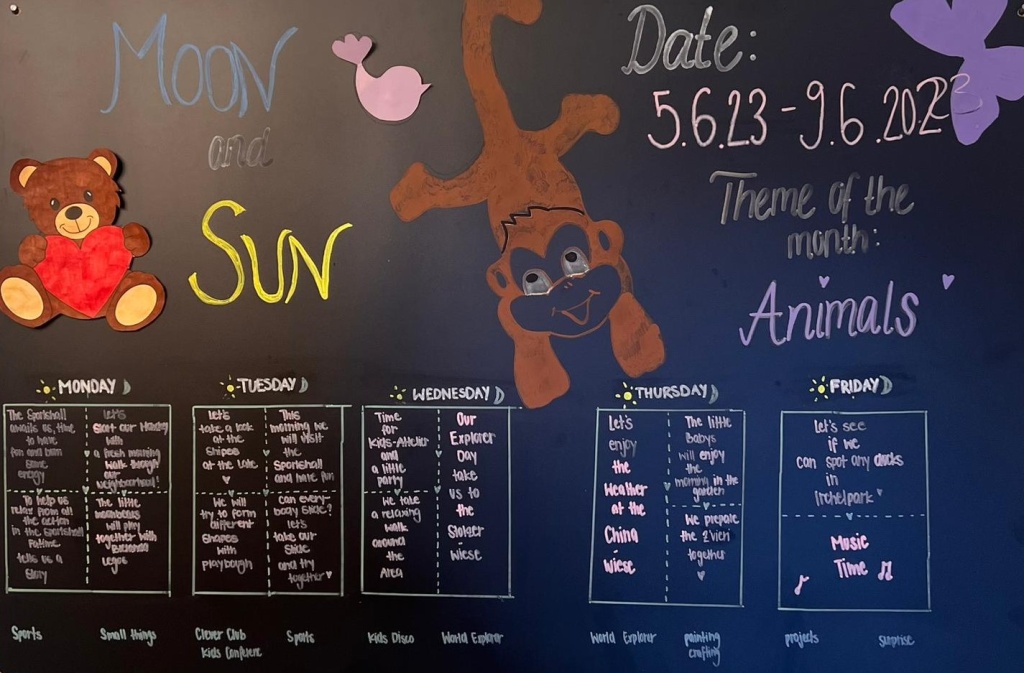 MOON
and
SUN
Date:
5.6.23 - 9.6.2023
Theme of the
month:
Animals
MONDAY
The Sportshall
awaits us, time
to have
fun and burn
some
energy
Let's
start our Monday
with
a fresh morning
walk through
our
neighborhood!
To help us
relax from all
the action
in the sportshall
tells us a
story
The little
will play
together with
legos
TUESDAY
Let's
take a look
at the
at the lake
This
morning we
will visit
the
Sportshall
and have fun
We will
try to form
different
shapes
with
playdough
Can every-
body slide?
let's
take our
slide
and try
together
WEDNESDAY
Time
for
Kids-Atelier
and
a little
party
We take
a relaxing
walk
around
the
Area
Our
Explorer
Day
take
us to
the
wiese
THURSDAY
Let's
enjoy
the
weather
at the
China
wiese
The little
Babys
will enjoy
the
morning in the
garden
We prepare
the Zvieri
together
FRIDAY
Let's see
if we
can spot any ducks
in
Irchelpark
Music
Time
Sports
Small things
Clever Club
Kids Conference
Sports
Kids Disco
World Explorer
World Explorer
painting
crafting
projects
surprise